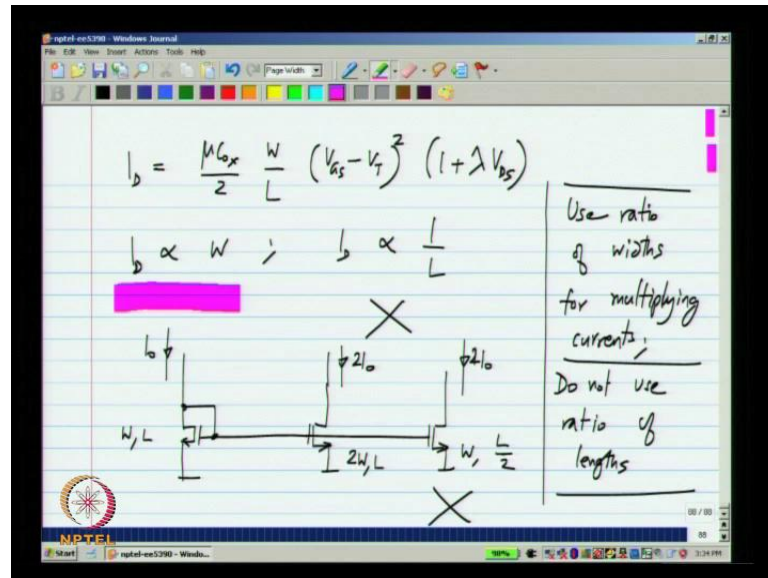 nptel-ee5390 - Windows Journal
File Edit View Insert Actions Tools Help
Page Width
B I
I_D = μC_ox/2 W/L (V_GS - V_T)^2 (1 + λ V_DS)
I_D ∝ W ; I_D ∝ 1/L
X
I_0 2I_0 2I_0
W, L 2W, L W, L/2
X
Use ratio
of widths
for multiplying
currents;
Do not use
ratio of
lengths
NPTEL
88 / 88
88
Start nptel-ee5390 - Windo...
3:34 PM